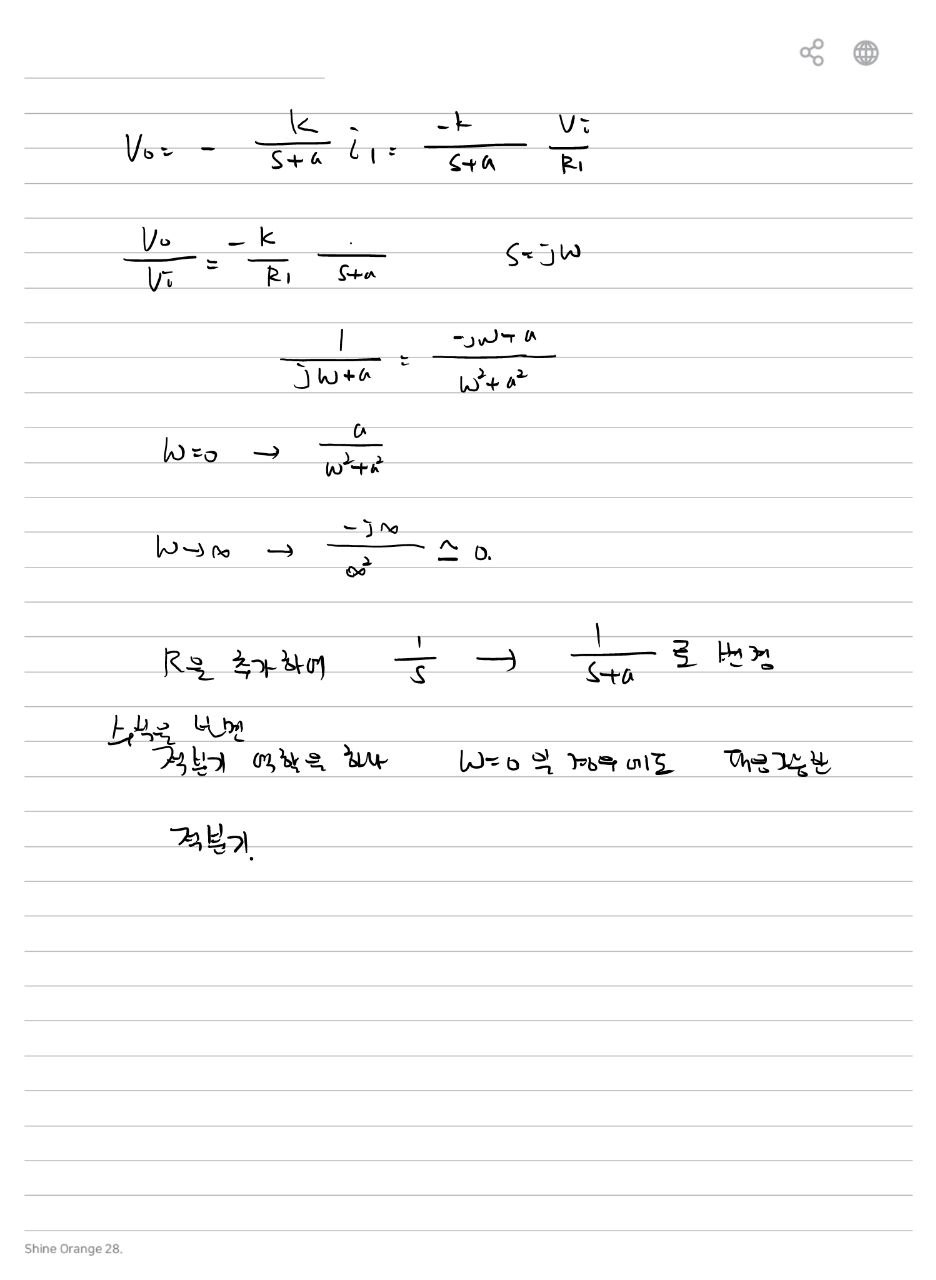 V₀ = - k/(s+a) i₁ = -k/(s+a) Vi/R₁
V₀/Vi = - k/R₁ ·/(s+a) s=jω
1/(jω+a) = (-jω+a)/(ω²+a²)
ω=0 → a/(ω²+a²)
ω→∞ → -j∞/∞² ≃ 0.
R을 추가하여 1/s → 1/(s+a) 로 변경
수식을 보면
적분기 역할을 하나 ω=0 일 경우에도 대응가능한
적분기.
Shine Orange 28.